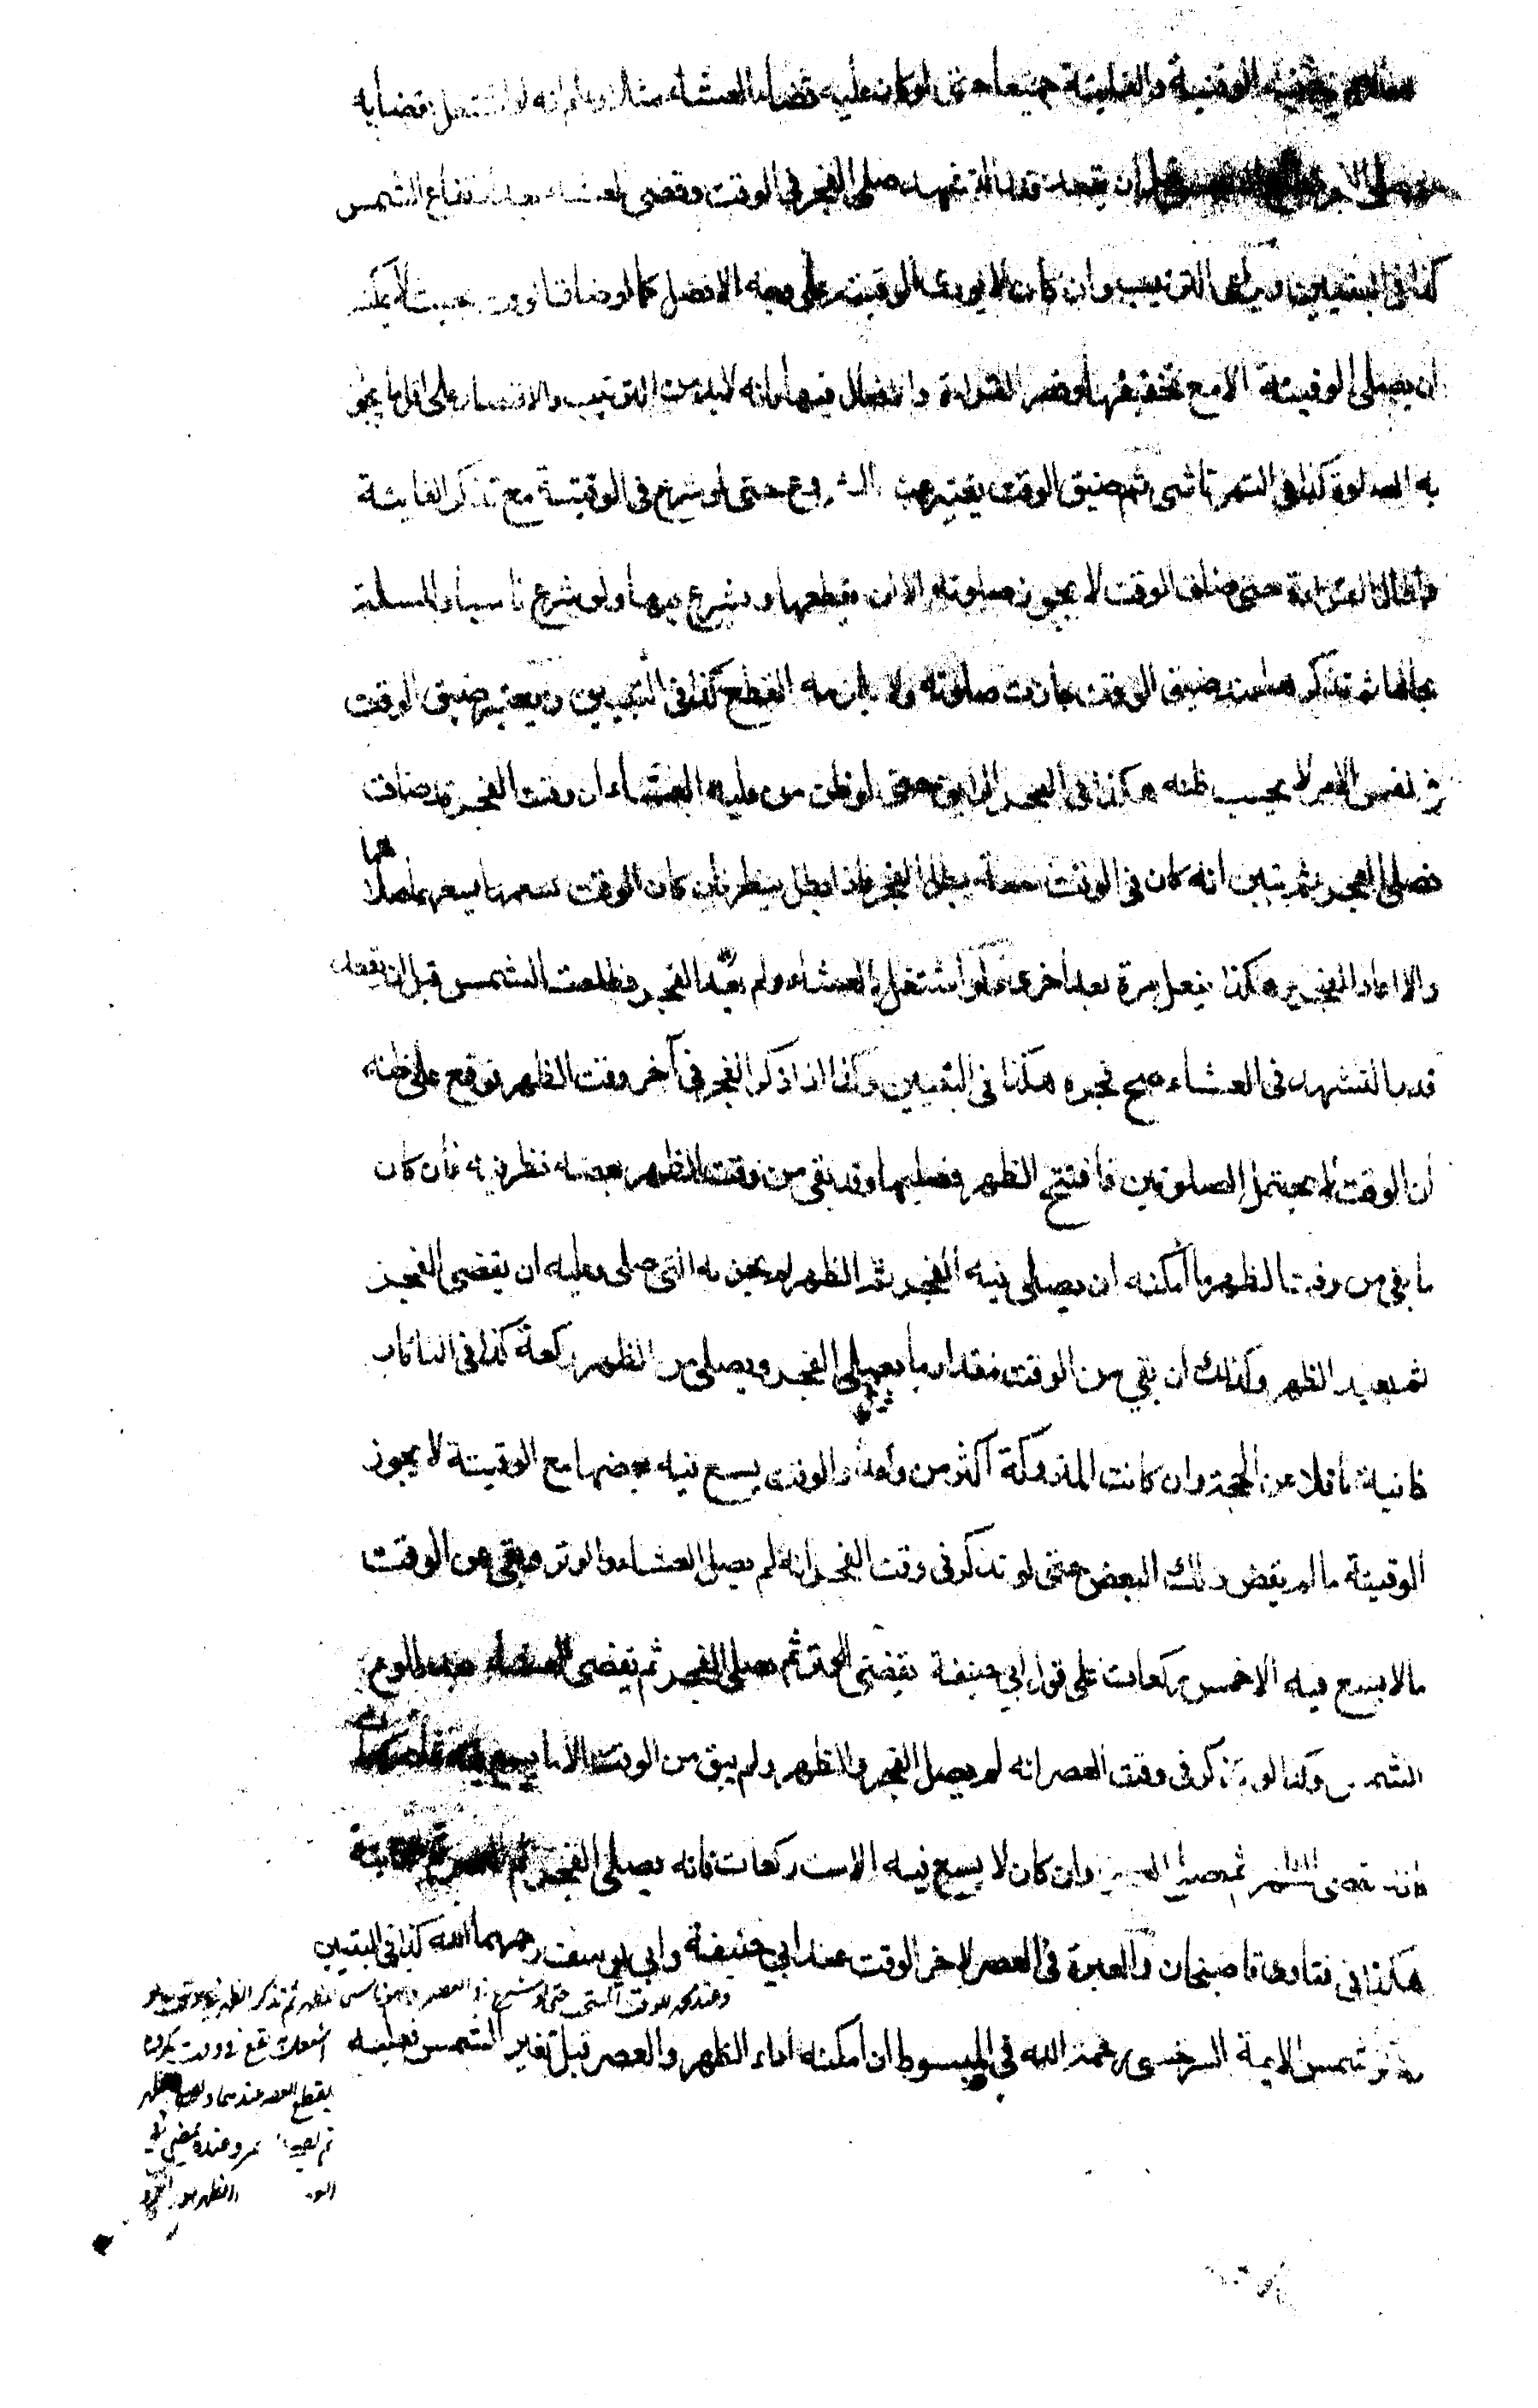 الوقتية والفايتة جميعا حتى لو كان عليه قضاء العشاء مثلا وعلم انه لو اشتغل بقضايه
ان يقعد قدر التشهد صلى الفجر في الوقت وقضى العشاء بعد ارتفاع الشمس
كذا في التبيين ويراعى الترتيب وان كان لا يودى الوقتية على وجه الافضل كما لو ضاق الوقت بحيث لا يمكنه
ان يصلى الوقيتة الا مع تخفيفها وقصر القراءة والافعال فيها فانه لا بد من الترتيب والاقتصار على اقل ما يجوز
به الصلوة كذا في التمرتاشى ثم ضيق الوقت يعتبر عند الشروع حتى لو شرع في الوقتية مع تذكر الفايتة
واطال القراءة حتى ضاق الوقت لا يجوز صلوته الا ان يقطعها ويشرع فيها ولو شرع ناسيا والمسلة
بحالها ثم تذكر عند ضيق الوقت جازت صلوته ولا يلزمه القطع كذا في التبيين ويعتبر ضيق الوقت
في نفس الامر لا بحسب ظنه هكذا في البحر الرايق حتى لو ظن من عليه العشاء ان وقت الفجر قد ضاق
فصلى الفجر ثم تبين انه كان في الوقت سعة يبطل الفجر فاذا بطل ينظر فان كان الوقت يسعهما صلاهما
والا اعاد الفجر هكذا يفعل مرة بعد اخرى ولو اشتغل بالعشاء ولم يعد الفجر فطلعت الشمس قبل ان يقعد
قدر التشهد في العشاء صح فجره هكذا في التبيين وكذا اذا ذكر الفجر في آخر وقت الظهر فوقع على ظنه
ان الوقت لا يحتمل الصلوتين فافتتح الظهر فصليها وقد بقى من وقت الظهر بعضه نظر فيه فان كان
ما بقي من وقت الظهر ما امكنه ان يصلى فيه الفجر ثم الظهر لم يجز له التى صلى وعليه ان يقضى الفجر
ثم يعيد الظهر وكذلك ان بقي من الوقت مقدار ما يصلى الفجر ويصلى من الظهر ركعة كذا في التاتار
خانية ناقلا عن الحجة وان كانت المتروكة اكثر من واحدة والوقت يسع فيه بعضها مع الوقيتة لا يجوز
الوقيتة ما لم يقض ذلك البعض حتى لو تذكر في وقت الفجر انه لم يصل العشاء والوتر وبقى من الوقت
ما لا يسع فيه الا خمس ركعات على قول ابي حنيفة يقضى الوتر ثم يصلى الفجر ثم يقضى العشاء بعد طلوع
الشمس وكذا لو تذكر في وقت العصر انه لم يصل الفجر والظهر ولم يبق من الوقت الا ما يسع فيه
فانه يقضى الظهر ثم يصلى العصر وان كان لا يسع فيه الا ست ركعات فانه يصلى الفجر ثم العصر ثم
هكذا في فتاوى قاضيخان والعبرة في العصر لاخر الوقت عند ابي حنيفة وابي يوسف رحمهما الله كذا في التبيين
وعند محمد للوقت المستحب حتى لو شرع في العصر وهو ناسى للظهر ثم تذكر الظهر في وقت لو
اشتغل به تقع في وقت مكروه
يقطع العصر عندهما ويصلى الظهر
ثم يصلى وعنده يمضى في
الظهر بعد
وذكر شمس الايمة السرخسى رحمه الله في المبسوط ان امكنه اداء الظهر والعصر قبل تغير الشمس فعليه